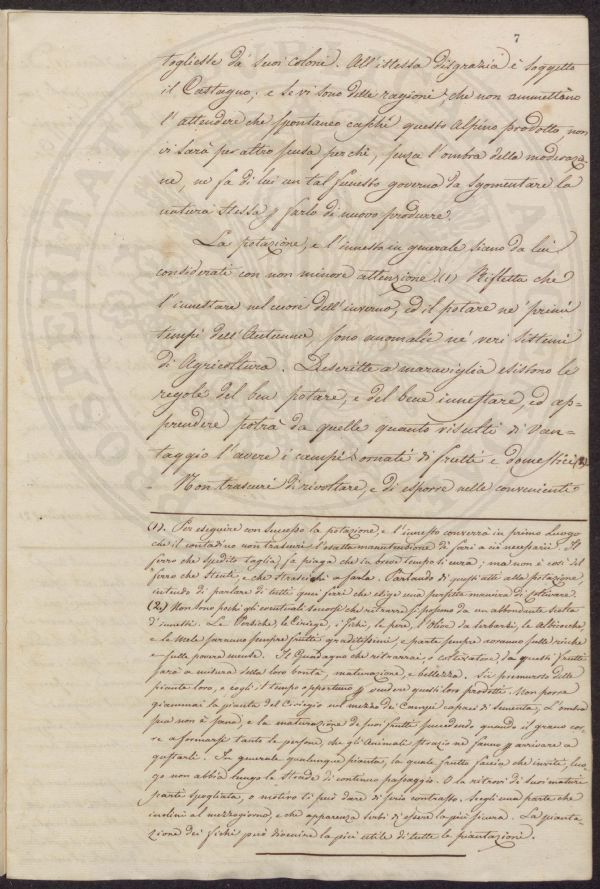 7
togliesse da' suoi coloni. All'istessa disgrazia è soggetto
il Castagno; e se vi sono delle ragioni, che non ammettano
l'attendere che spontaneo caschi questo Alpino prodotto, non
vi sarà per altro scusa perché, senza l'ombra della moderazio=
ne, ne fa di lui un tal funesto governo da sgomentare la
natura stessa p farlo di nuovo produrre.
La potazione, e l'innesto in generale siano da lui
considerati con non minore attenzione (1) Rifletta che
l'innestare nel cuore dell'inverno, ed il potare ne' primi
tempi dell'Autunno, sono anomalie ne' veri sistemi
di Agricoltura. Descritte a maraviglia esistono le
regole del ben potare, e del bene innestare, ed ap=
prendere potrà da quelle quanto risulti di van=
taggio l'avere i campi ornati di frutti e domestici (2).
Non trascuri di rivoltare, e di esporre nelle convenienti
(1). Per eseguire con successo la potazione, e l'innesto converrà in primo luogo
che il contadino non trascuri l'esatta manutensione di ferri a ciò necessarii. Il
ferro che spedito taglia, fa piaga che in breve tempo si cura; ma non è così il
ferro che stenti, e che strascichi a farla. Parlando di questi atti alla potazione,
intendo di parlare di tutti quei ferri che esige una perfetta maniera di coltivare.
(2.) Non sono pochi gli eventuali soccorsi che ritrarre si possono da un'abbondante scelta
d'innesti. Le Persiche, le Ciriege, i fichi, le pere, l'Olive da serbarsi, le Albicocche,
e le Mele saranno sempre frutti graditissimi, e parte sempre avranno sulle ricche
e sulle povere mense. Il Guadagno che ritrarrai, o coltivatore, da questi frutti
sarà a misura della loro bontà, maturazione, e bellezza. Sii premuroso delle
piante loro, e cogli il tempo opportuno p vendere questi loro prodotti. Non porre
giammai la pianta del Ciriegio nel mezzo de' Campi capaci di sementa. L'ombra
sua non è sana, e la maturazione de' suoi frutti succedendo quando il grano cor=
re a formarsi tanto le persone, che gli Animali strazio ne fanno p arrivare a
gustarli. In generale qualunque pianta, la quale frutto faccia che inviti, luo=
go non abbia lungo le strade di continuo passaggio. O la ritrovi di suoi maturi
parti spogliata, o motivo ti può dare di serio contrasto. Scegli una parte che
inclini al mezzogiorno, e che apparenza serbi di essere la più sicura. La pianta=
zione dei fichi può divenire la più utile di tutte le piantazioni.